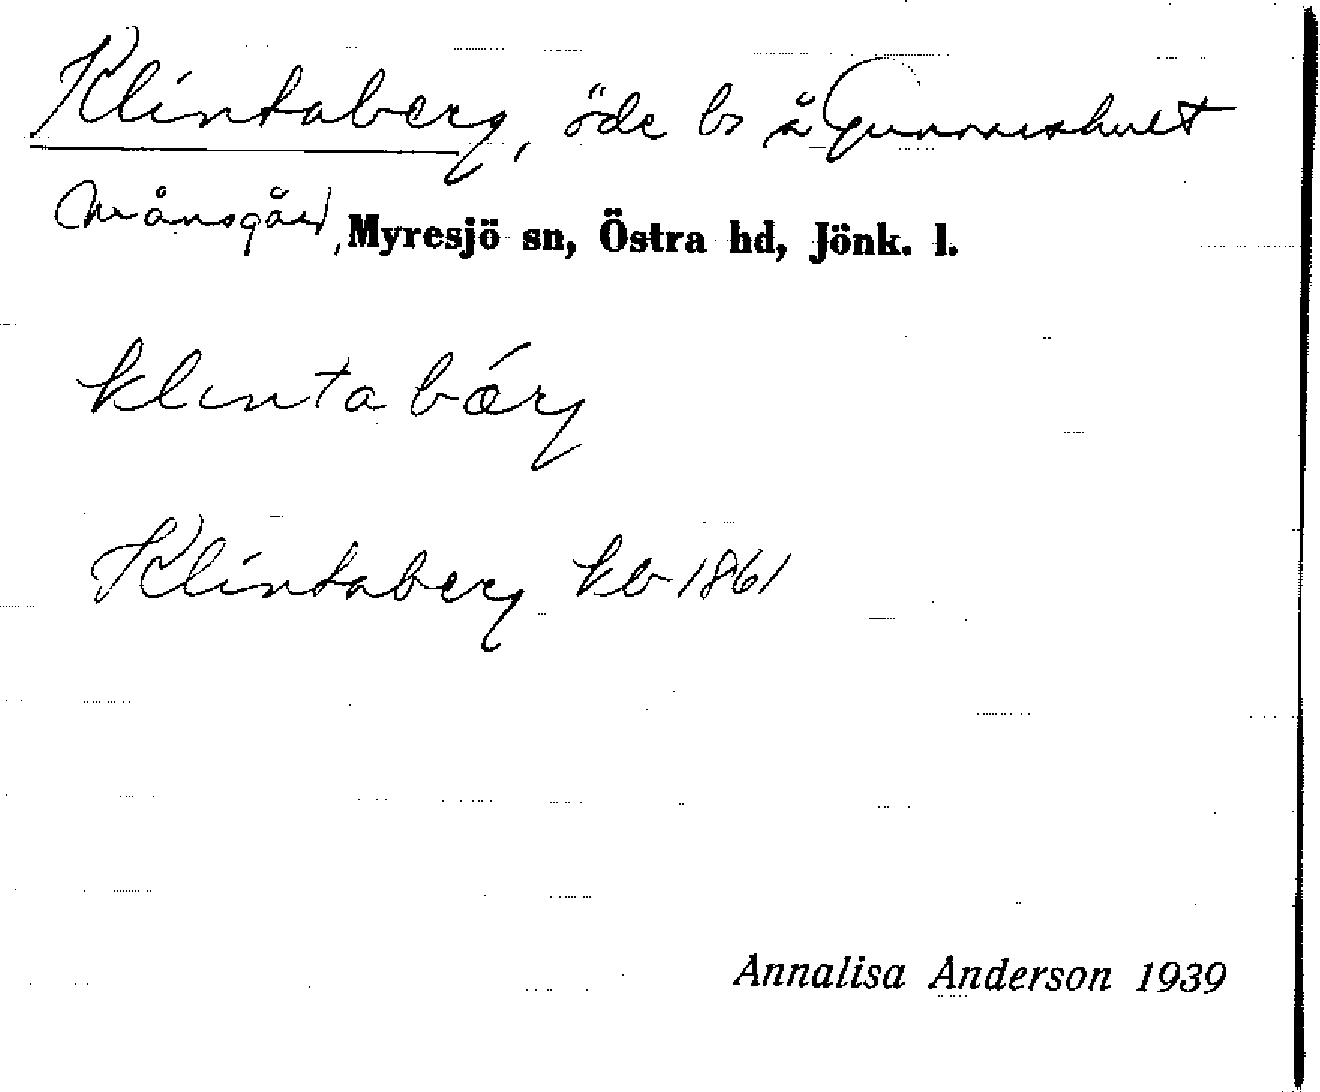 Klintaberg, öde bs å Gunnarshult
Månsgård, Myresjö sn, Östra hd, Jönk. l.
klintabärg
Klintaberg kb 1861
Annalisa Anderson 1939